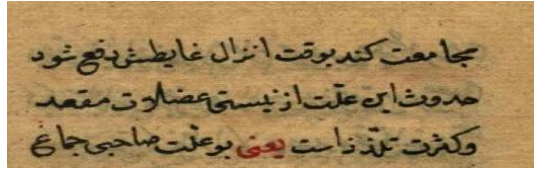 مجامعت کند بوقت انزال غایطش دفع شود
حدوث این علّت از نیستی عضلات مقعد
وکثرت تلذذ است یعنی بو علّت صاحبی جماع